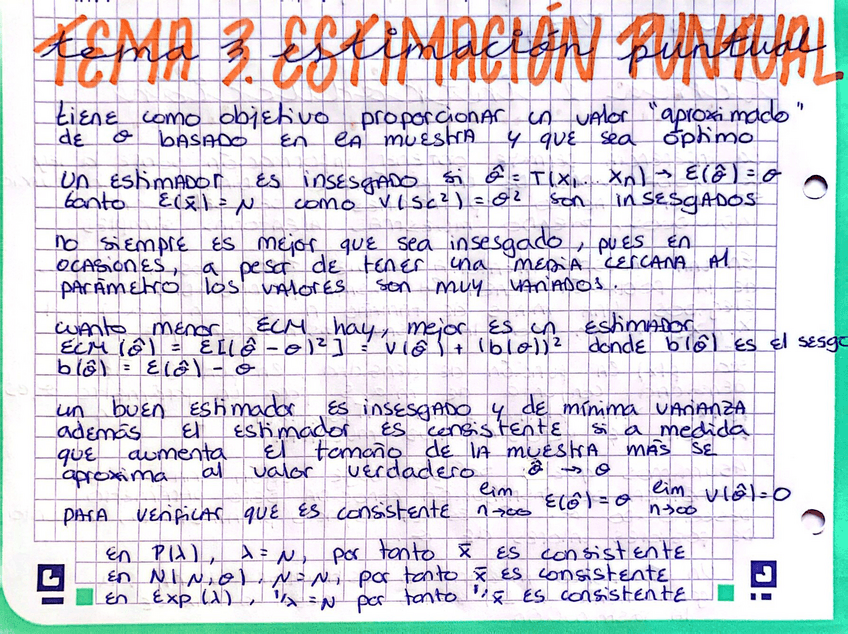 TEMA 3. ESTIMACIÓN PUNTUAL
tema 3. estimación puntual
tiene como objetivo proporcionar un valor "aproximado"
de θ basado en la muestra y que sea óptimo
un estimador es insesgado si θ̂ = T(x1... xn) → E(θ̂) = θ
tanto E(x̄) = N como V(sc²) = θ² son insesgados
no siempre es mejor que sea insesgado, pues en
ocasiones, a pesar de tener una media cercana al
parámetro los valores son muy variados.
cuanto menor ECM hay, mejor es un estimador
ECM (θ̂) = E[(θ̂ - θ)²] = V(θ̂) + (b(θ))² donde b(θ̂) es el sesgo
b(θ̂) = E(θ̂) - θ
un buen estimador es insesgado y de mínima varianza
además el estimador es consistente si a medida
que aumenta el tamaño de la muestra más se
aproxima al valor verdadero θ̂ → θ
para verificar que es consistente lim n→∞ E(θ̂) = θ lim n→∞ V(θ̂) = 0
en P(λ), λ = N, por tanto x̄ es consistente
en N(N,θ), N = N, por tanto x̄ es consistente
en Exp(λ), 1/λ = N por tanto 1/x̄ es consistente